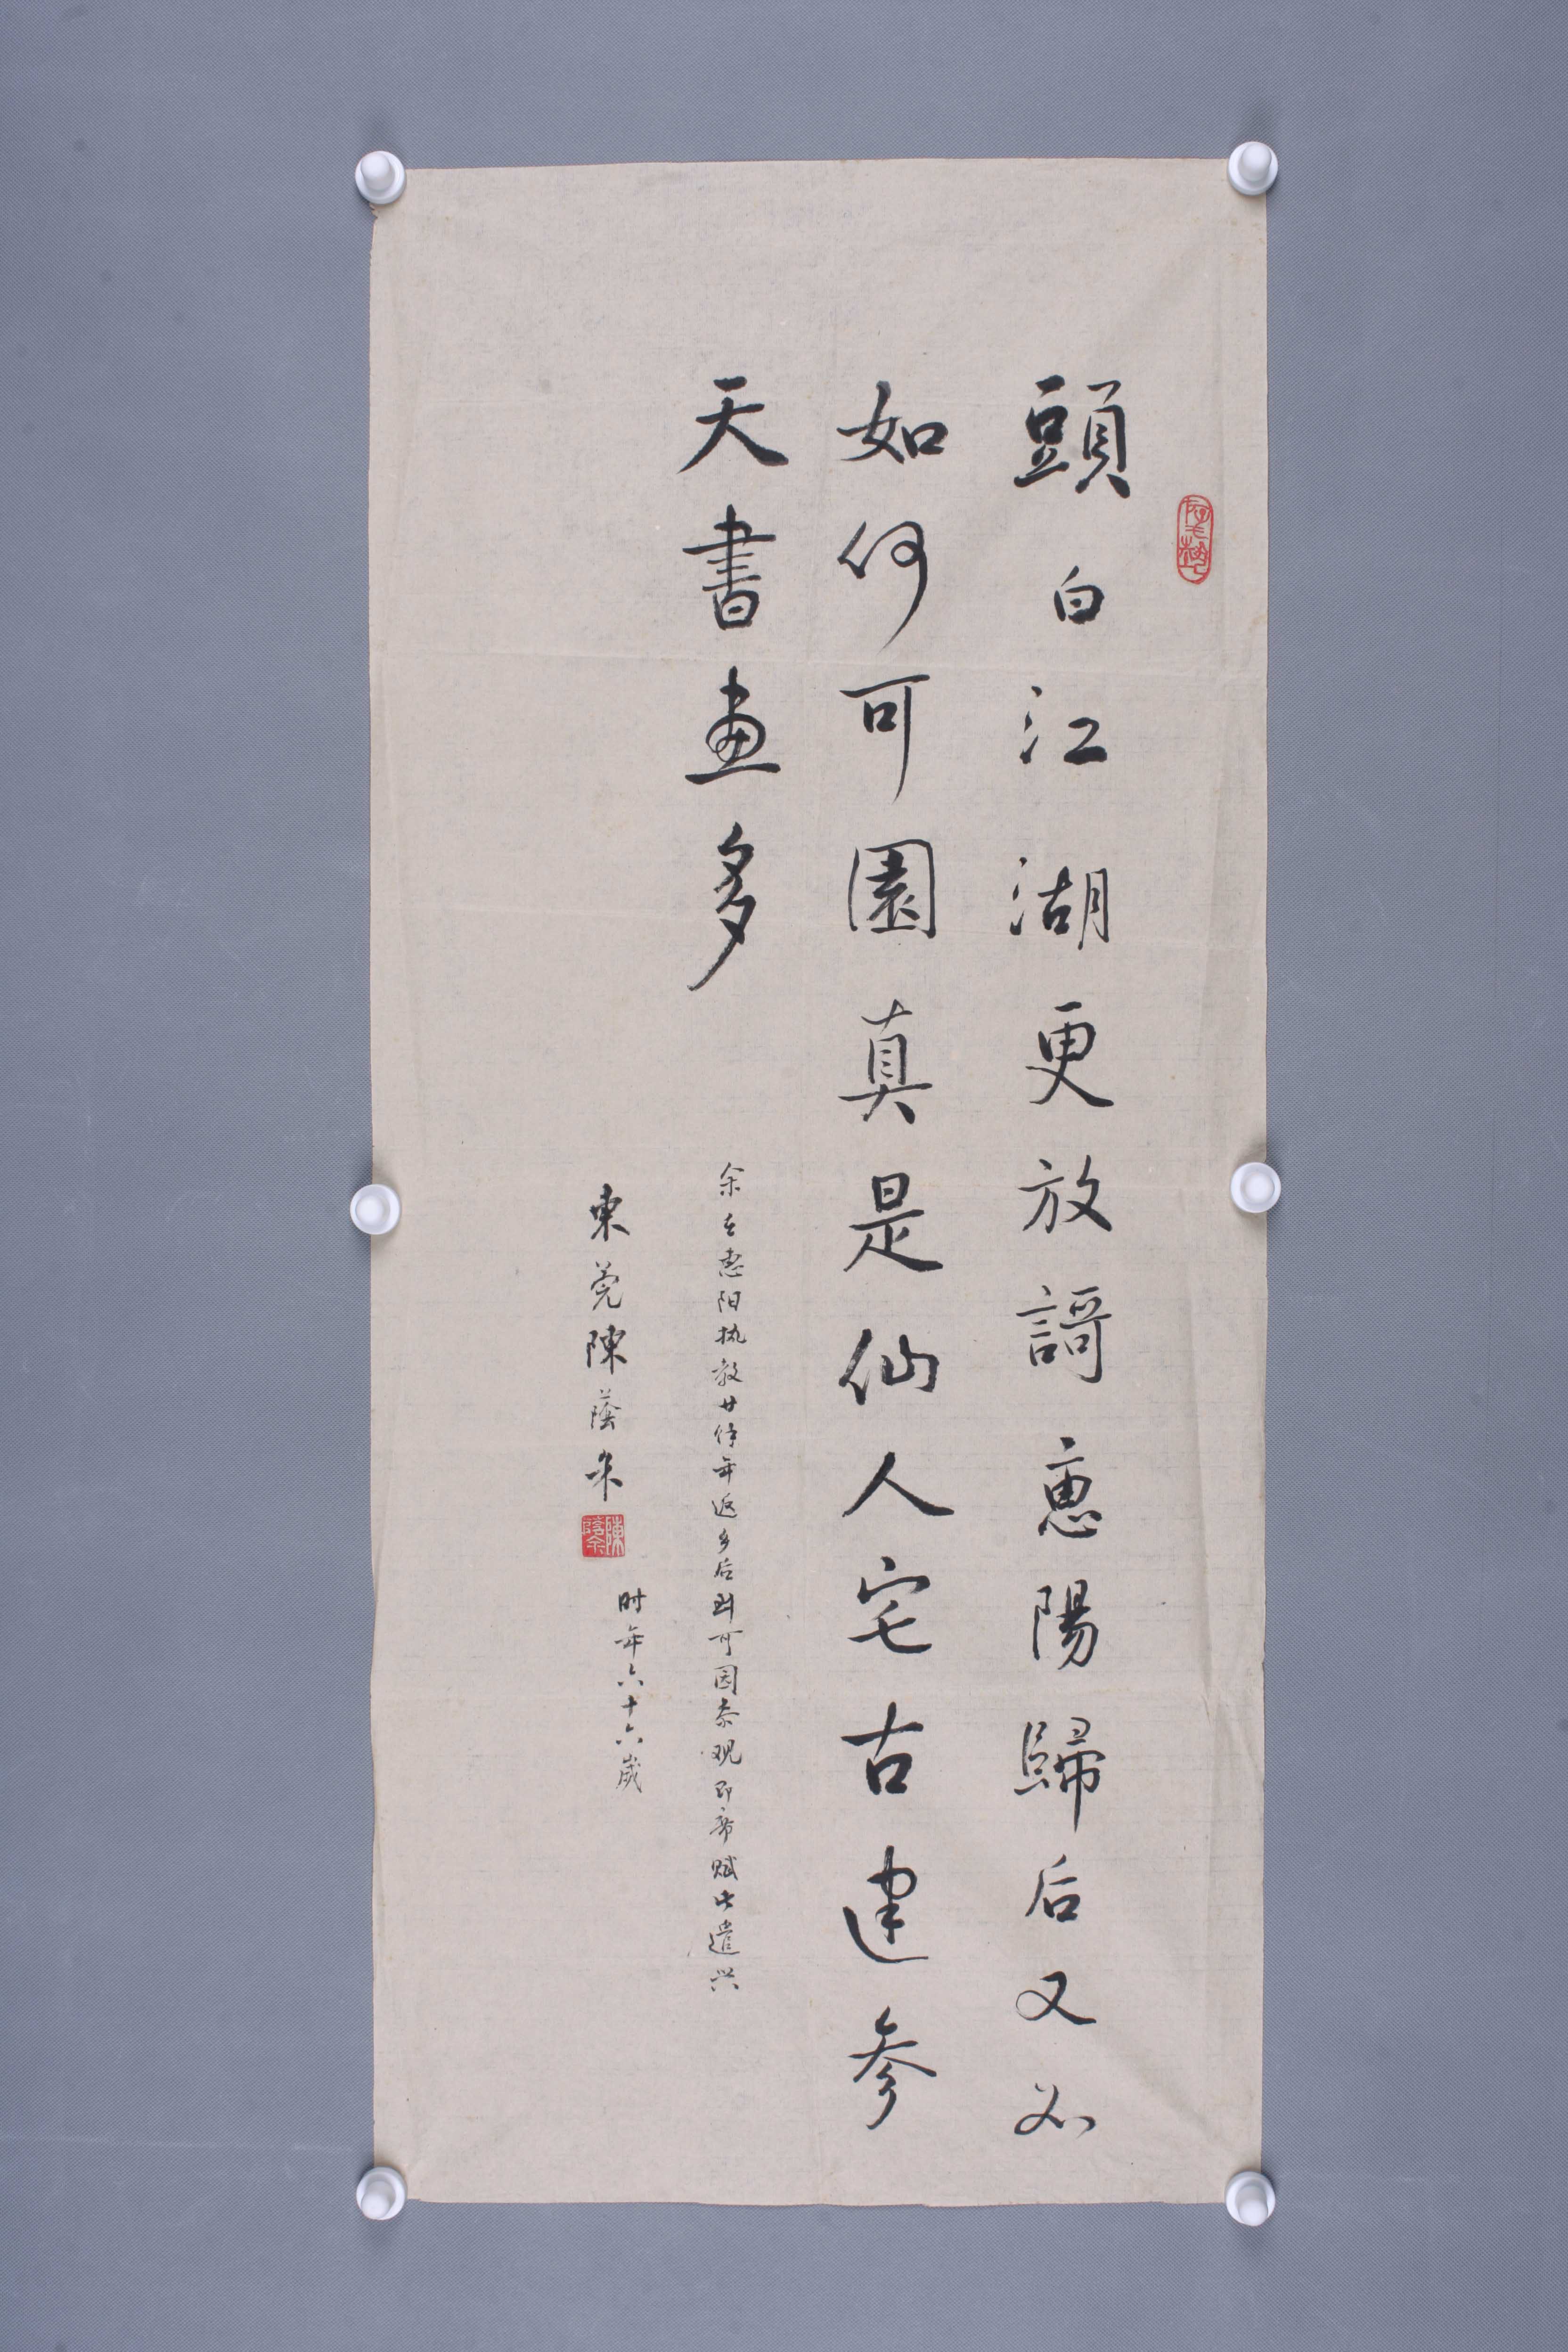 頭白江湖更放謌惠陽歸后又必
如何可園真是仙人宅古建參
天書畫多
余在惠阳执教廿余年返乡后到可园参观即席赋此遣兴
時年六十六歲
東莞陳蔭
陳蔭